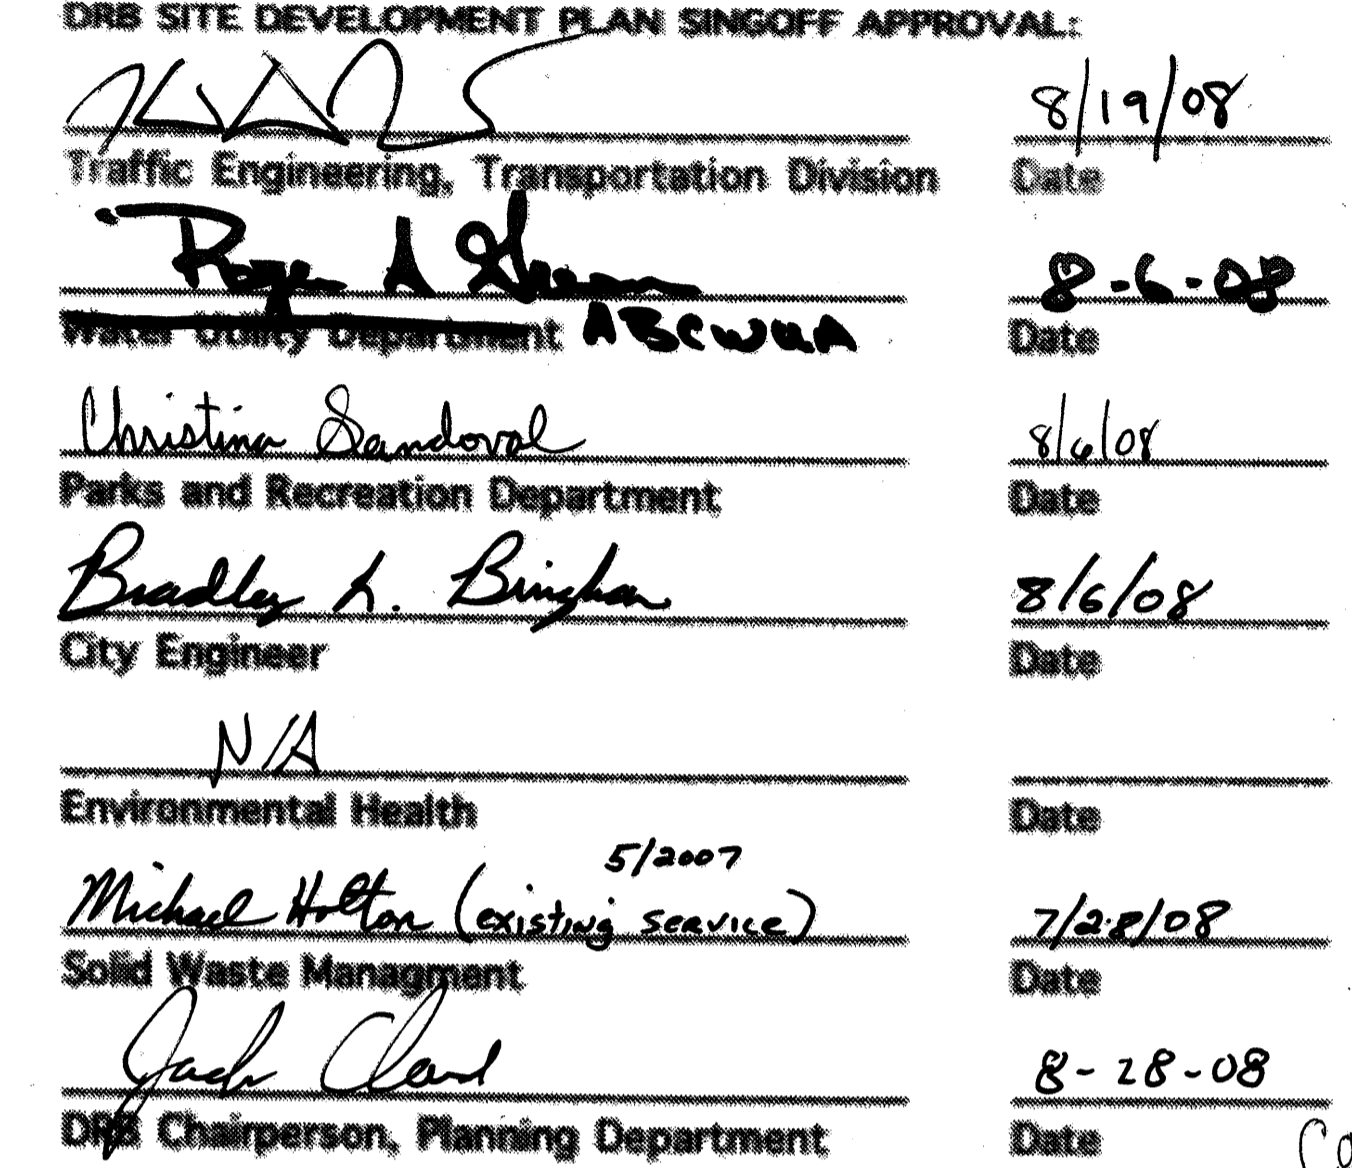 DRB SITE DEVELOPMENT PLAN SINGOFF APPROVAL:
8/19/08
Traffic Engineering, Transportation Division Date
Roger A Green 8-6-08
Water Utility Department ABCWUA Date
Christina Sandoval 8/6/08
Parks and Recreation Department Date
Bradley L. Bingham 8/6/08
City Engineer Date
N/A
Environmental Health Date
5/2007
Michael Holton (existing service) 7/28/08
Solid Waste Managment Date
Jack Cloud 8-28-08
DRB Chairperson, Planning Department Date